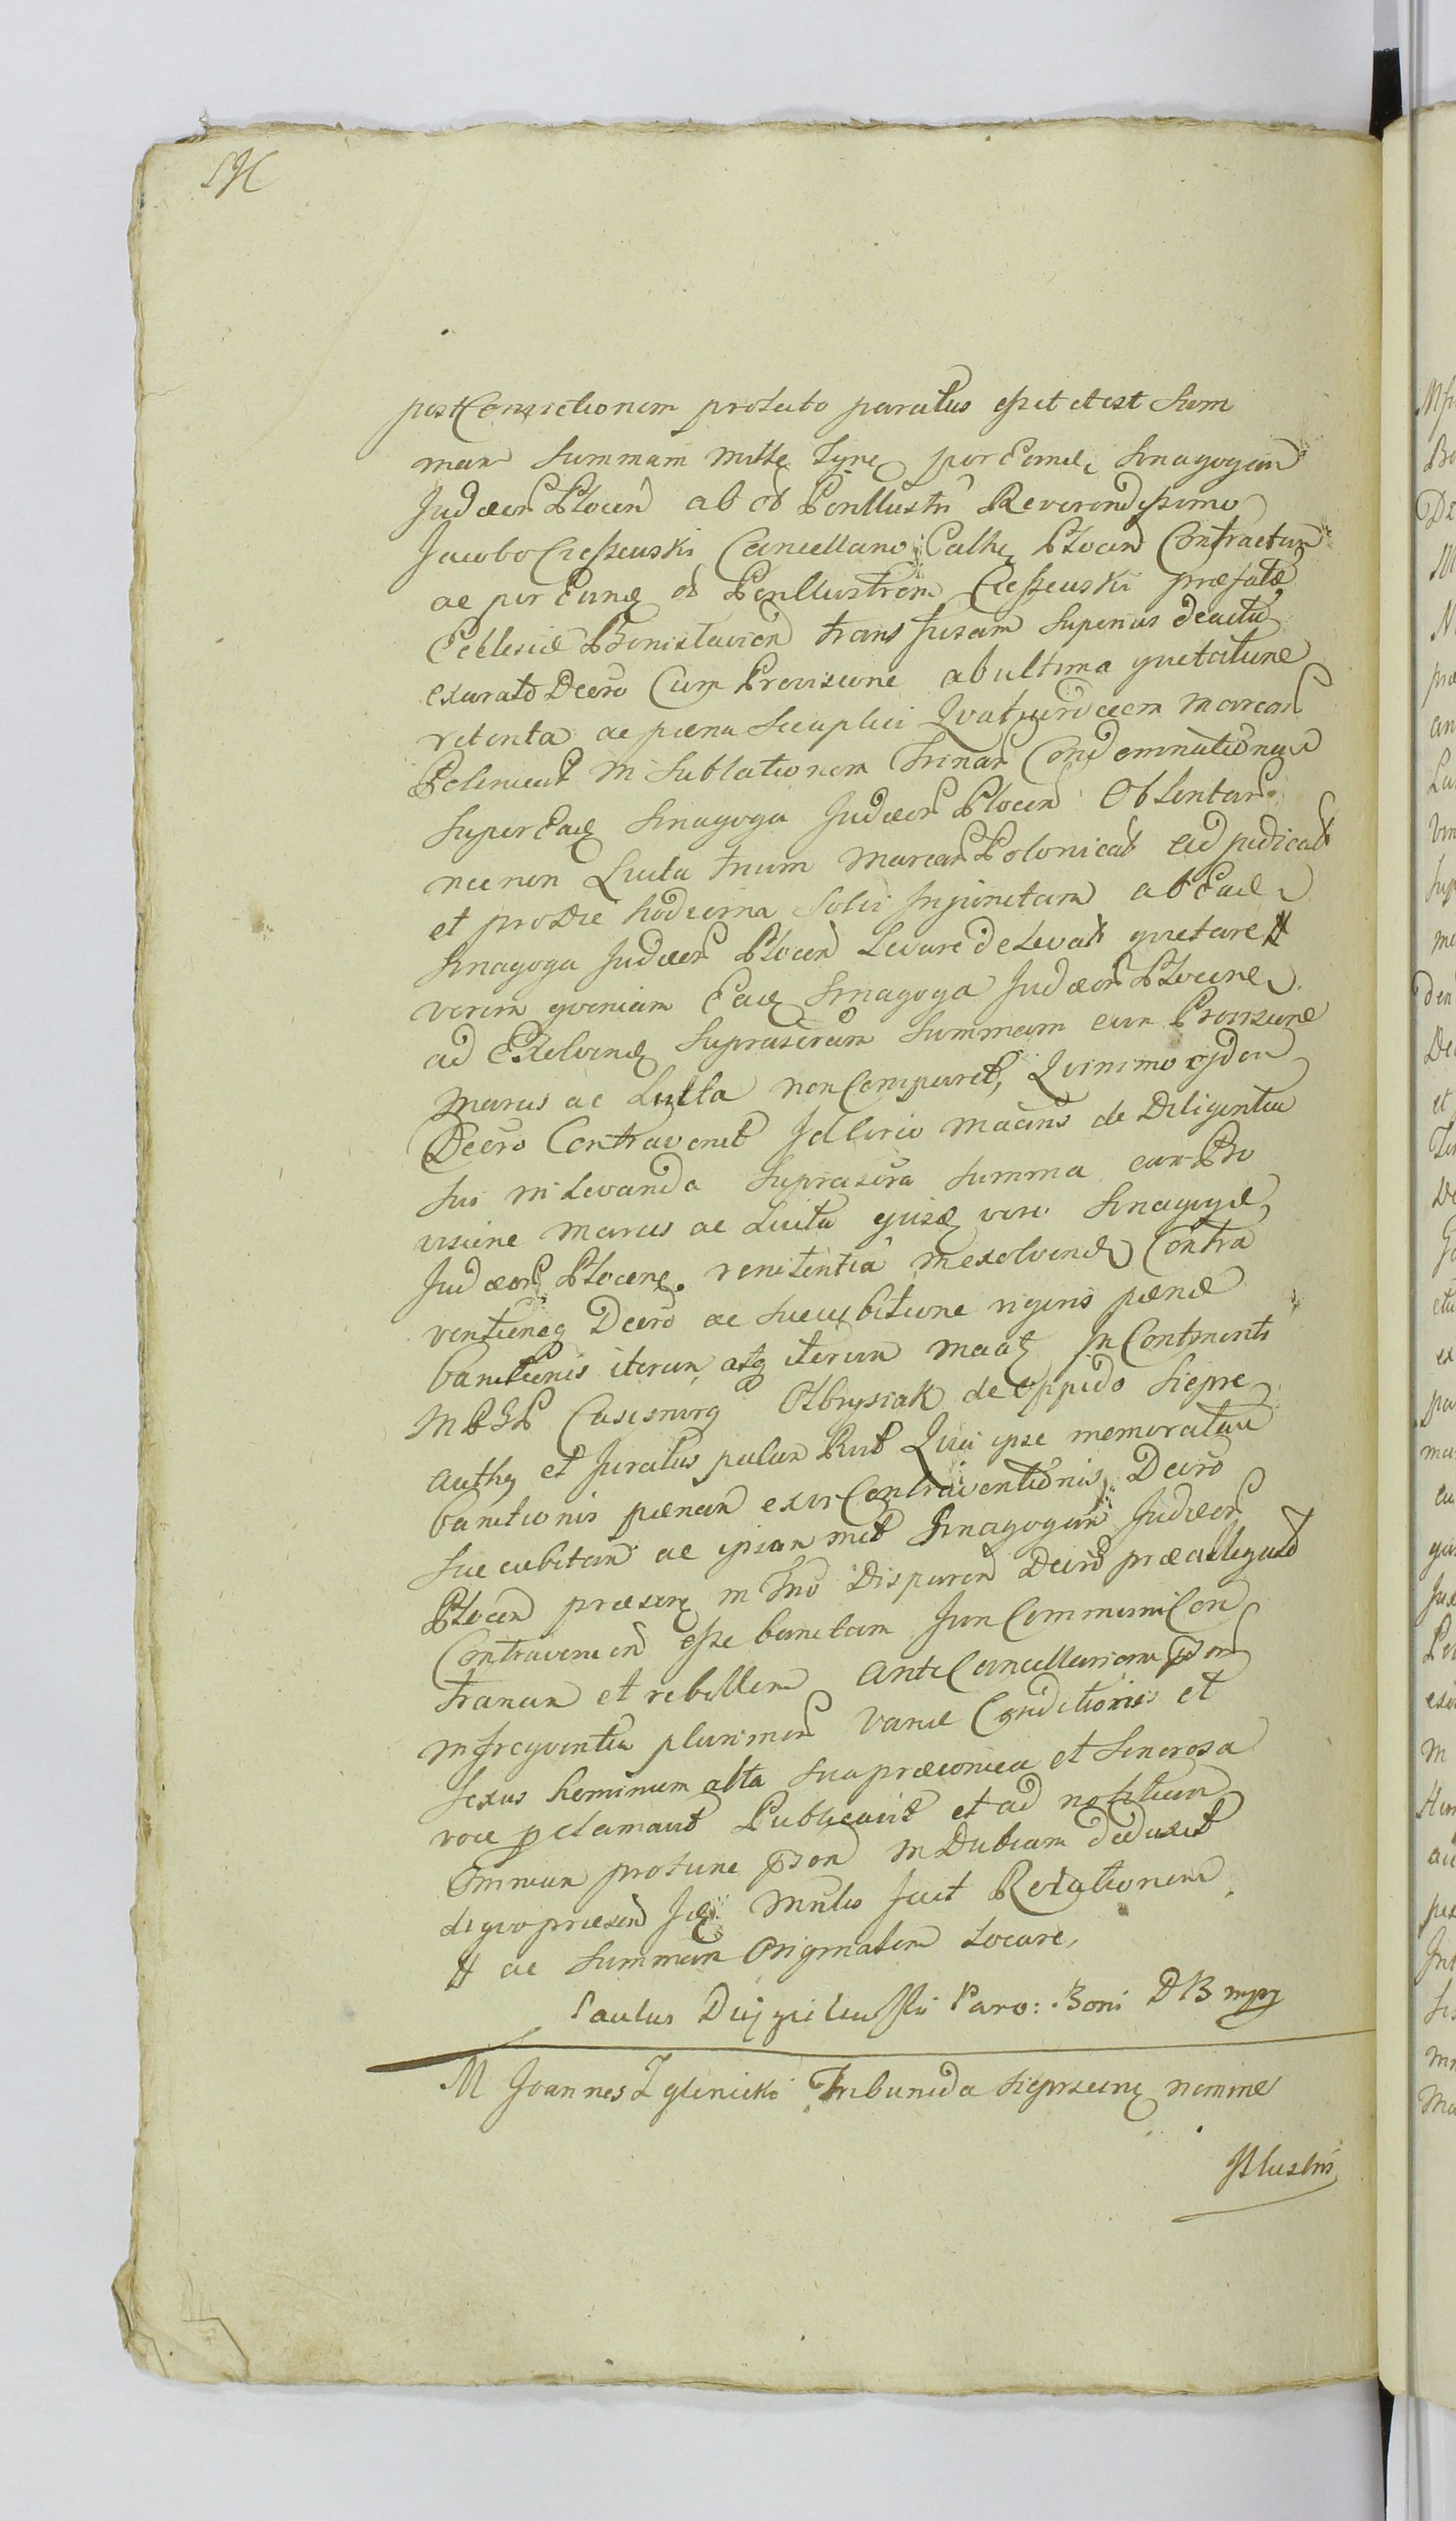 post Convictionem prolato paratus eszet et est Sum
man Summam mille Tynf per Eamd Sinagogam
Judæor Plocen ab od Perillustri Reverendissimo
Jacobo Cieszewski Cancellario Cathe Plocen Contractam
ac per Eund od Perillustrem Cieszewski præfatæ
Ecclesiæ Bonislavien transfusam Superius de actu
exarato Decro Cum Provisione ab ultima quetatione
retenta ac pæna Sicuplici Quatuordecem Marcar
Polonical in Sublationem Trinar Condemnationum
Super Ead Sinagoga Judæor Plocen Obtentar
nec non Luita trium Marcar Polonical adjudicat
et pro Die hodierna Solvi Injunctam ab Ead
Sinagoga Judæor Plocen Levare de Levat quetare #
verum quoniam Ead Sinagoga Judæor Plocene
ad Exolvend Suprascram Summam cum Provisione
Marcis ac Luita non Comparet, Quinimo ejdem
Decro Contravenit Id Circo Macius de Diligentia
Sui in Levanda Suprascra Summa cum Pro
visione Marcis ac Luita ejusd vero Sinagogæ
Judæor Plocene renitentia in exolvend Contra
ventioneq Decro ac Succubitione rigoris pænæ
banitionis iterum atq iterum maat In Continenti
MPGL Casimirg Olbrysiak de Oppido Siepre
authg et Juratus palam Rvit Quia ipse memoratam
banitionis pænam exvi Contraventionis Decro
Succubitam ac ipsam met Sinagogam Judæor
Plocen præsere in Tno Disparen Decro præallegato
Contravenien esze banitam Jun Communi Con
trariam et rebellem ante Cancellariam psom
in frequentia plurimor variæ Conditionis et
Sexus hominum alta Sua præconica et Senorosa
voce pclamavit Publicavit et ad notitiam
Omnium protunc pson in Dubiam deduxit
de quo præsen Jd Mnlis fecit Relationem
# ac Summam Originalem locare,
Paulus Paro: Boni DB mpp
M Joannes Zglenicki Tribunida Sieprcene nomine
Illustris